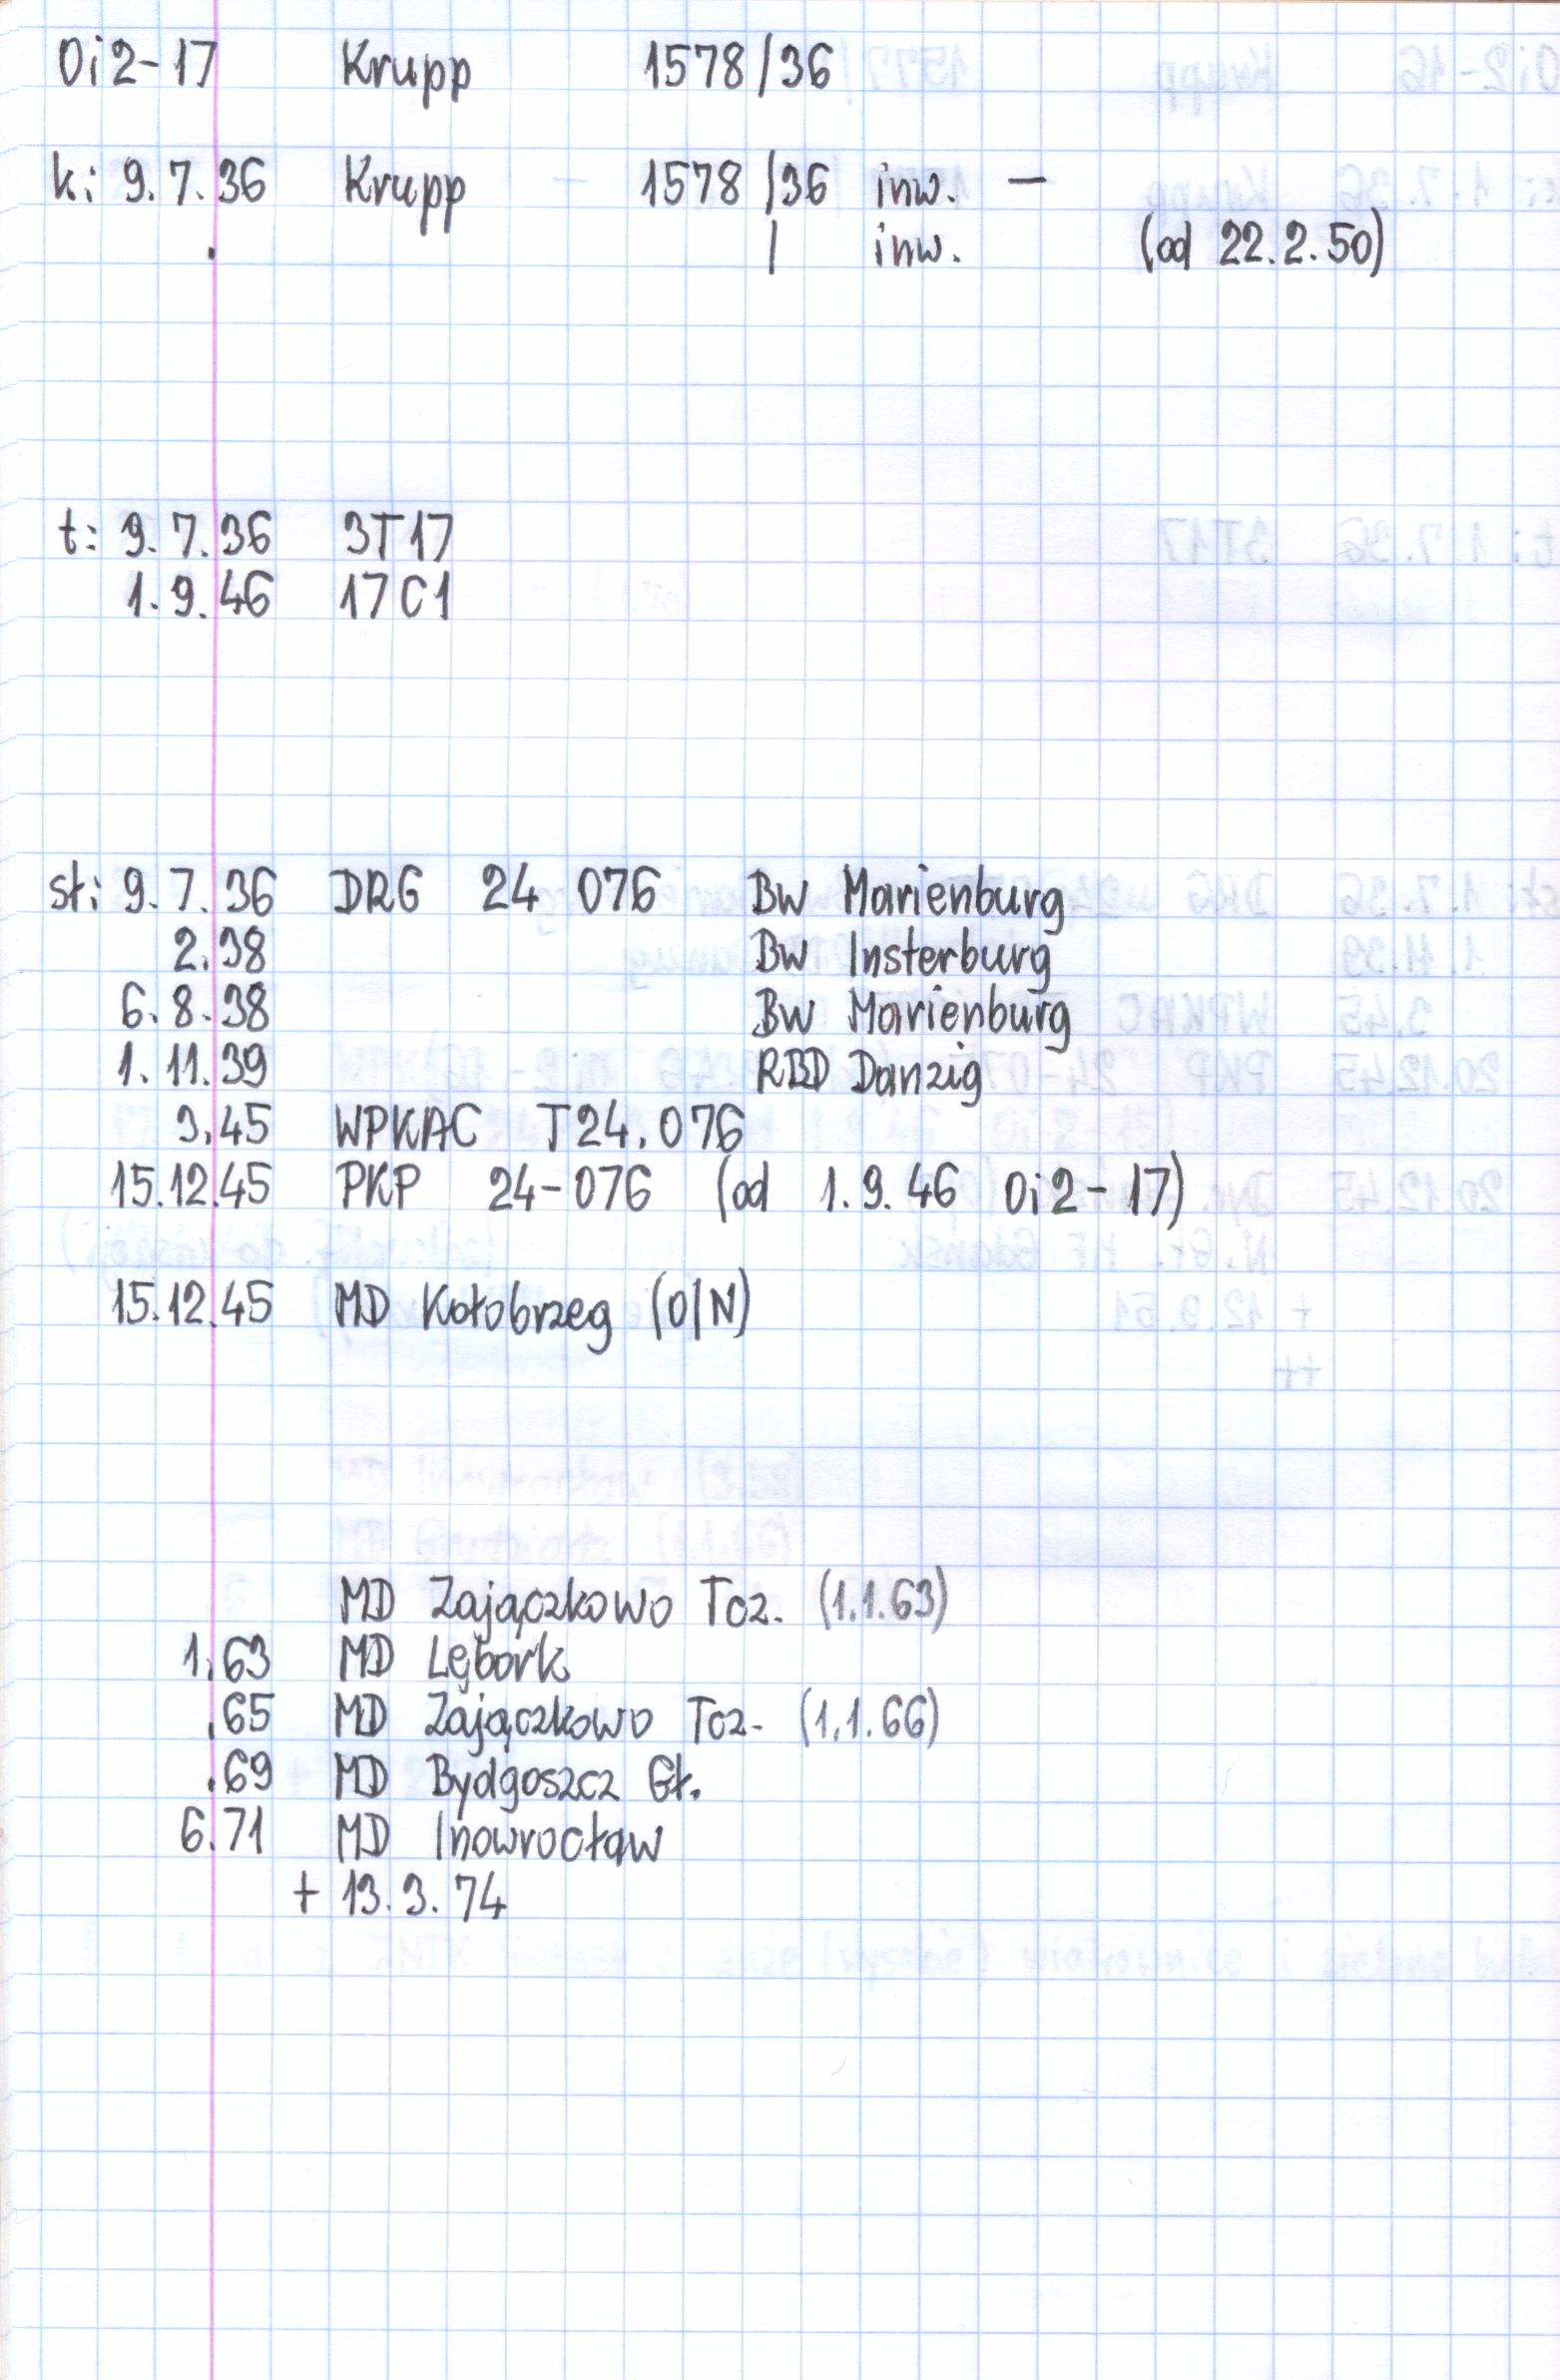 Oi2-17 Krupp 1578/36
k: 9.7.36 Krupp 1578/36 inw. —
. / inw. (od 22.2.50)
t: 9.7.36 3T17
1.9.46 17C1
st: 9.7.36 DRG 24 076 Bw Marienburg
2.38 Bw Insterburg
6.8.38 Bw Marienburg
1.11.39 RBD Danzig
3.45 WPKAC T24.076
15.12.45 PKP 24-076 (od 1.9.46 Oi2-17)
15.12.45 MD Kołobrzeg (O/N)
MD Zajączkowo Tcz. (1.1.63)
1.63 MD Lębork
.65 MD Zajączkowo Tcz. (1.1.66)
.69 MD Bydgoszcz Gł.
6.71 MD Inowrocław
+ 13.3.74